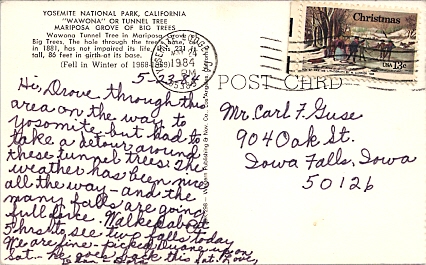 YOSEMITE NATIONAL PARK, CALIFORNIA
"WAWONA" OR TUNNEL TREE
MARIPOSA GROVE OF BIG TREES
Wawona Tunnel Tree in Mariposa Grove
Big Trees. The hole through the tree's base,
in 1881, has not impaired its life. 231 ft.
tall, 86 feet in girth at its base.
(Fell in Winter of 1968-1969)
1984
Christmas
USA 13c
POST CARD
5-23-84
Hi, Drove through this
area on the way to
Yosemite but had to
take a detour around
these tunnel trees. The
weather has been nice
all the way - and the
many falls are going
full force. Walked about
5 hrs to see two falls today
We are fine - picked Duane up on
Sat. - he goes back this Sat. Love,
Mr. Carl F. Guse
904 Oak St.
Iowa Falls, Iowa
50126